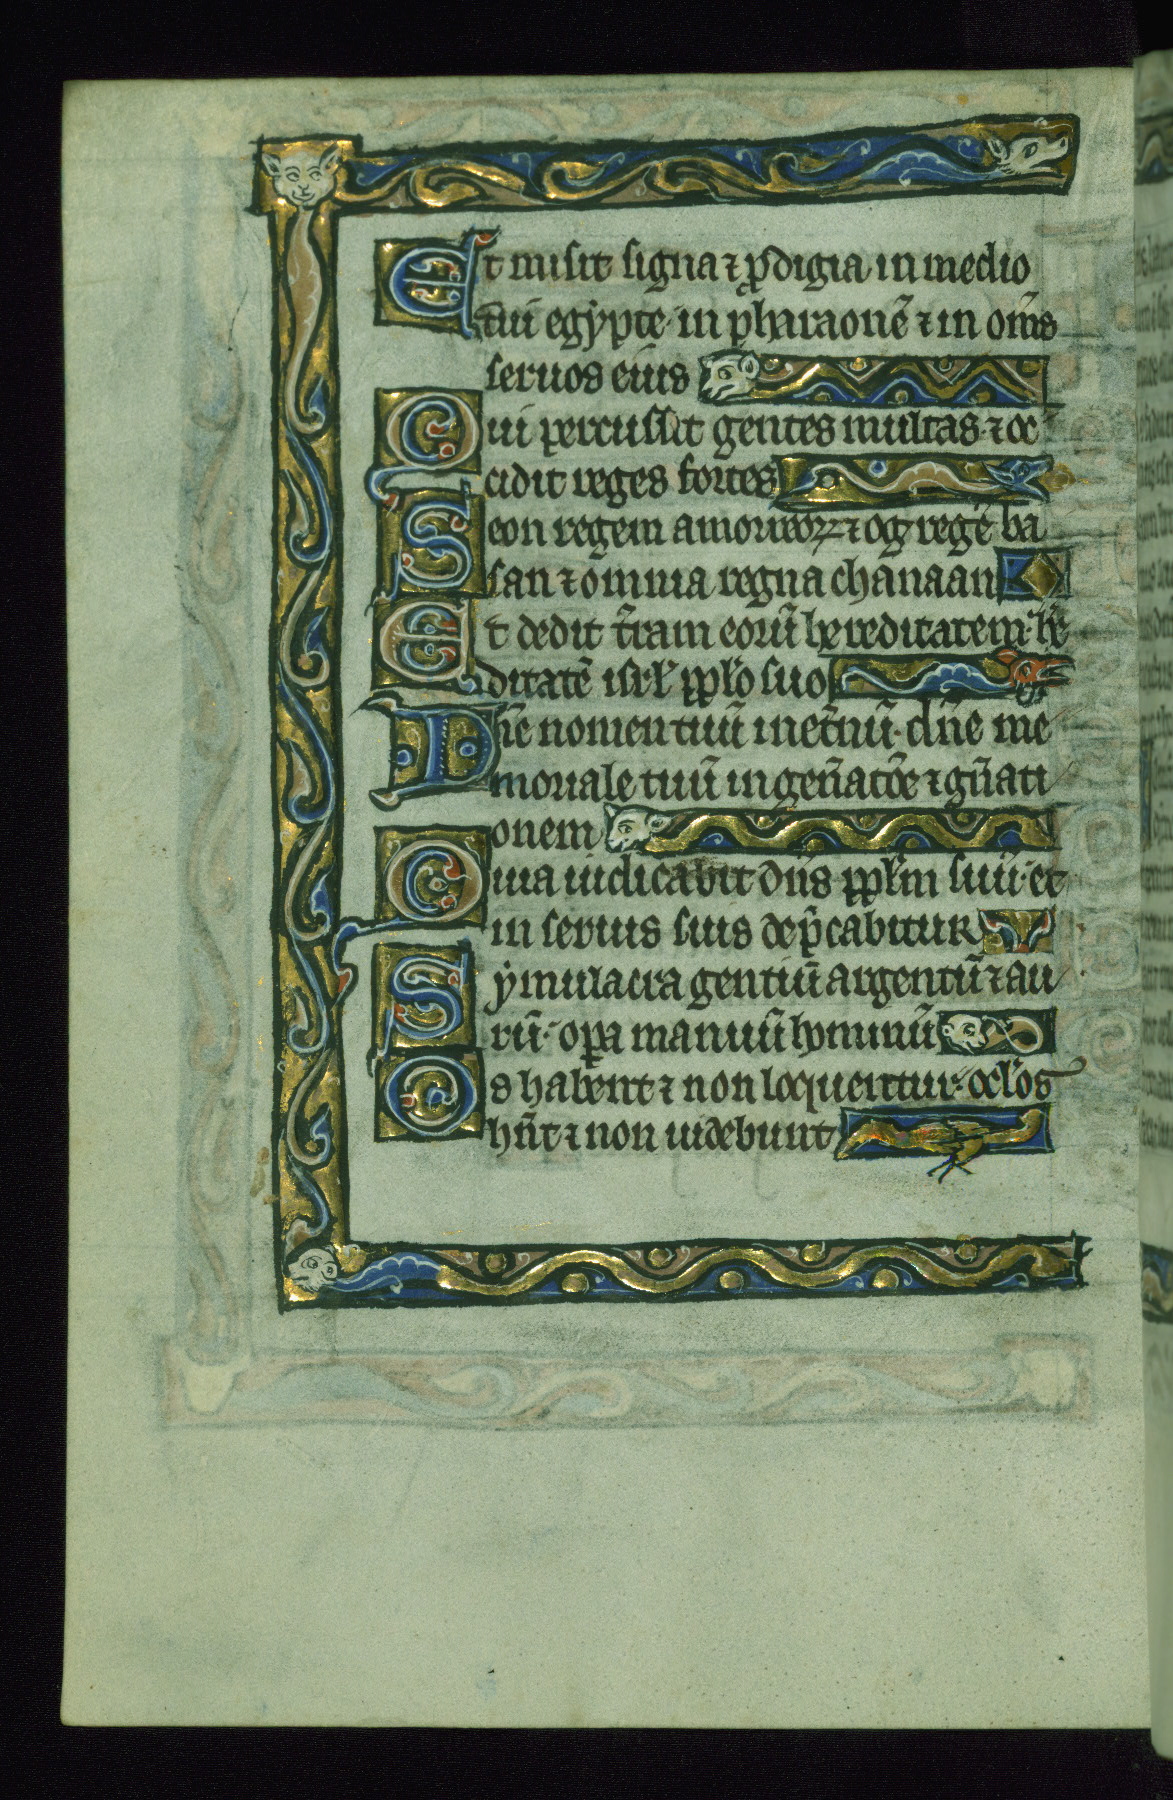 Et misit signa ⁊ ꝓdigia in medio
tui egẏpte· in pharaonē ⁊ in om̄s
seruos eius
Qui percussit gentes multas· ⁊ oc
cidit reges fortes
Seon regem amorreoꝝ ⁊ og regē ba
san ⁊ omnia regna chanaan
Et dedit t̄ram eorū hereditatem· he
ditatē isrl̓ ppl̓o suo
Dn̄e nomen tuū in et̄nū· dn̄e me
moriale tuū in gen̄atōe ⁊ gn̄ati
onem
Quia iudicabit dn̄s ppl̓m suū· et
in seruis suis dep̄cabitur
Sẏmulacra gentiū argentū ⁊ au
rū· oꝑa manuū hominū
Os habent ⁊ non loquentur· ocl̓os
hn̄t ⁊ non uidebunt